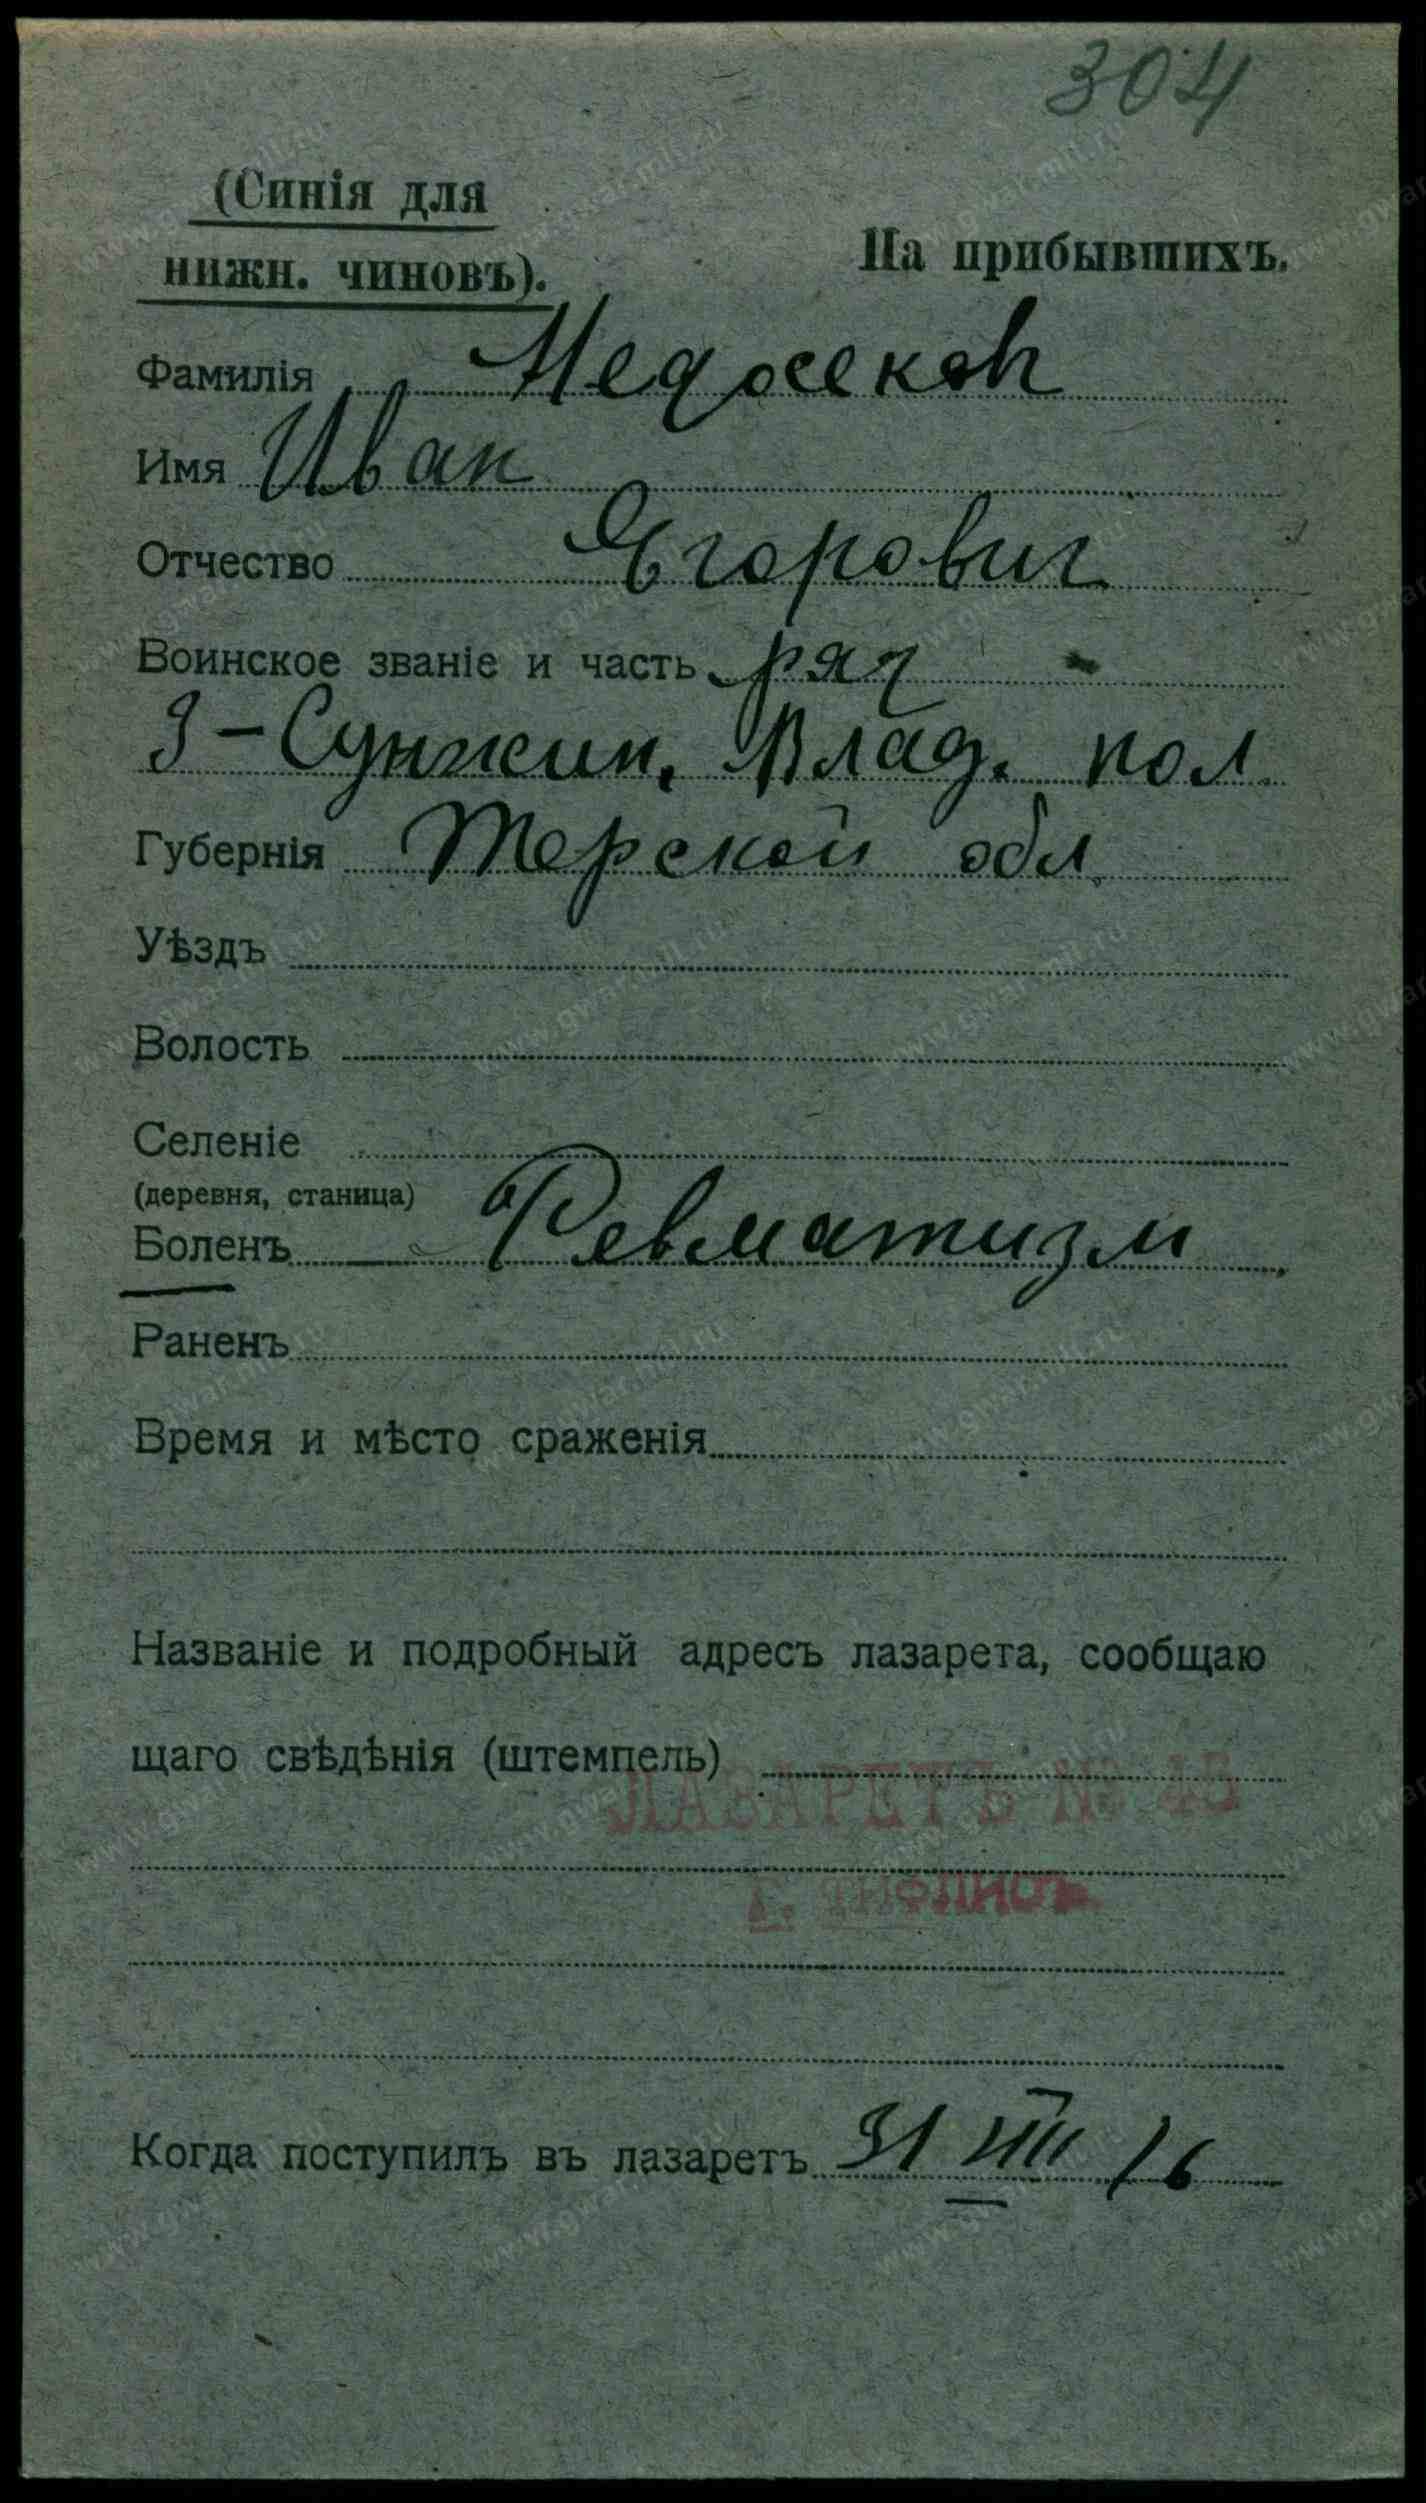 304
(Синія для
нижн. чиновъ).
На прибывшихъ.
Фамилія Недосековъ
Имя Иван
Отчество Егорович
Воинское званіе и часть ряд
3-Сунжин. Влад. пол
Губернія Терской обл
Уѣздъ
Волость
Селеніе
(деревня, станица)
Боленъ Ревматизм
Раненъ
Время и мѣсто сраженія
Названіе и подробный адресъ лазарета, сообщаю
щаго свѣдѣнія (штемпель)
ЛАЗАРЕТЪ № 45
Г. ТИФЛИСЪ.
Когда поступилъ въ лазаретъ 31 VIII 16
www.gwar.mil.ru